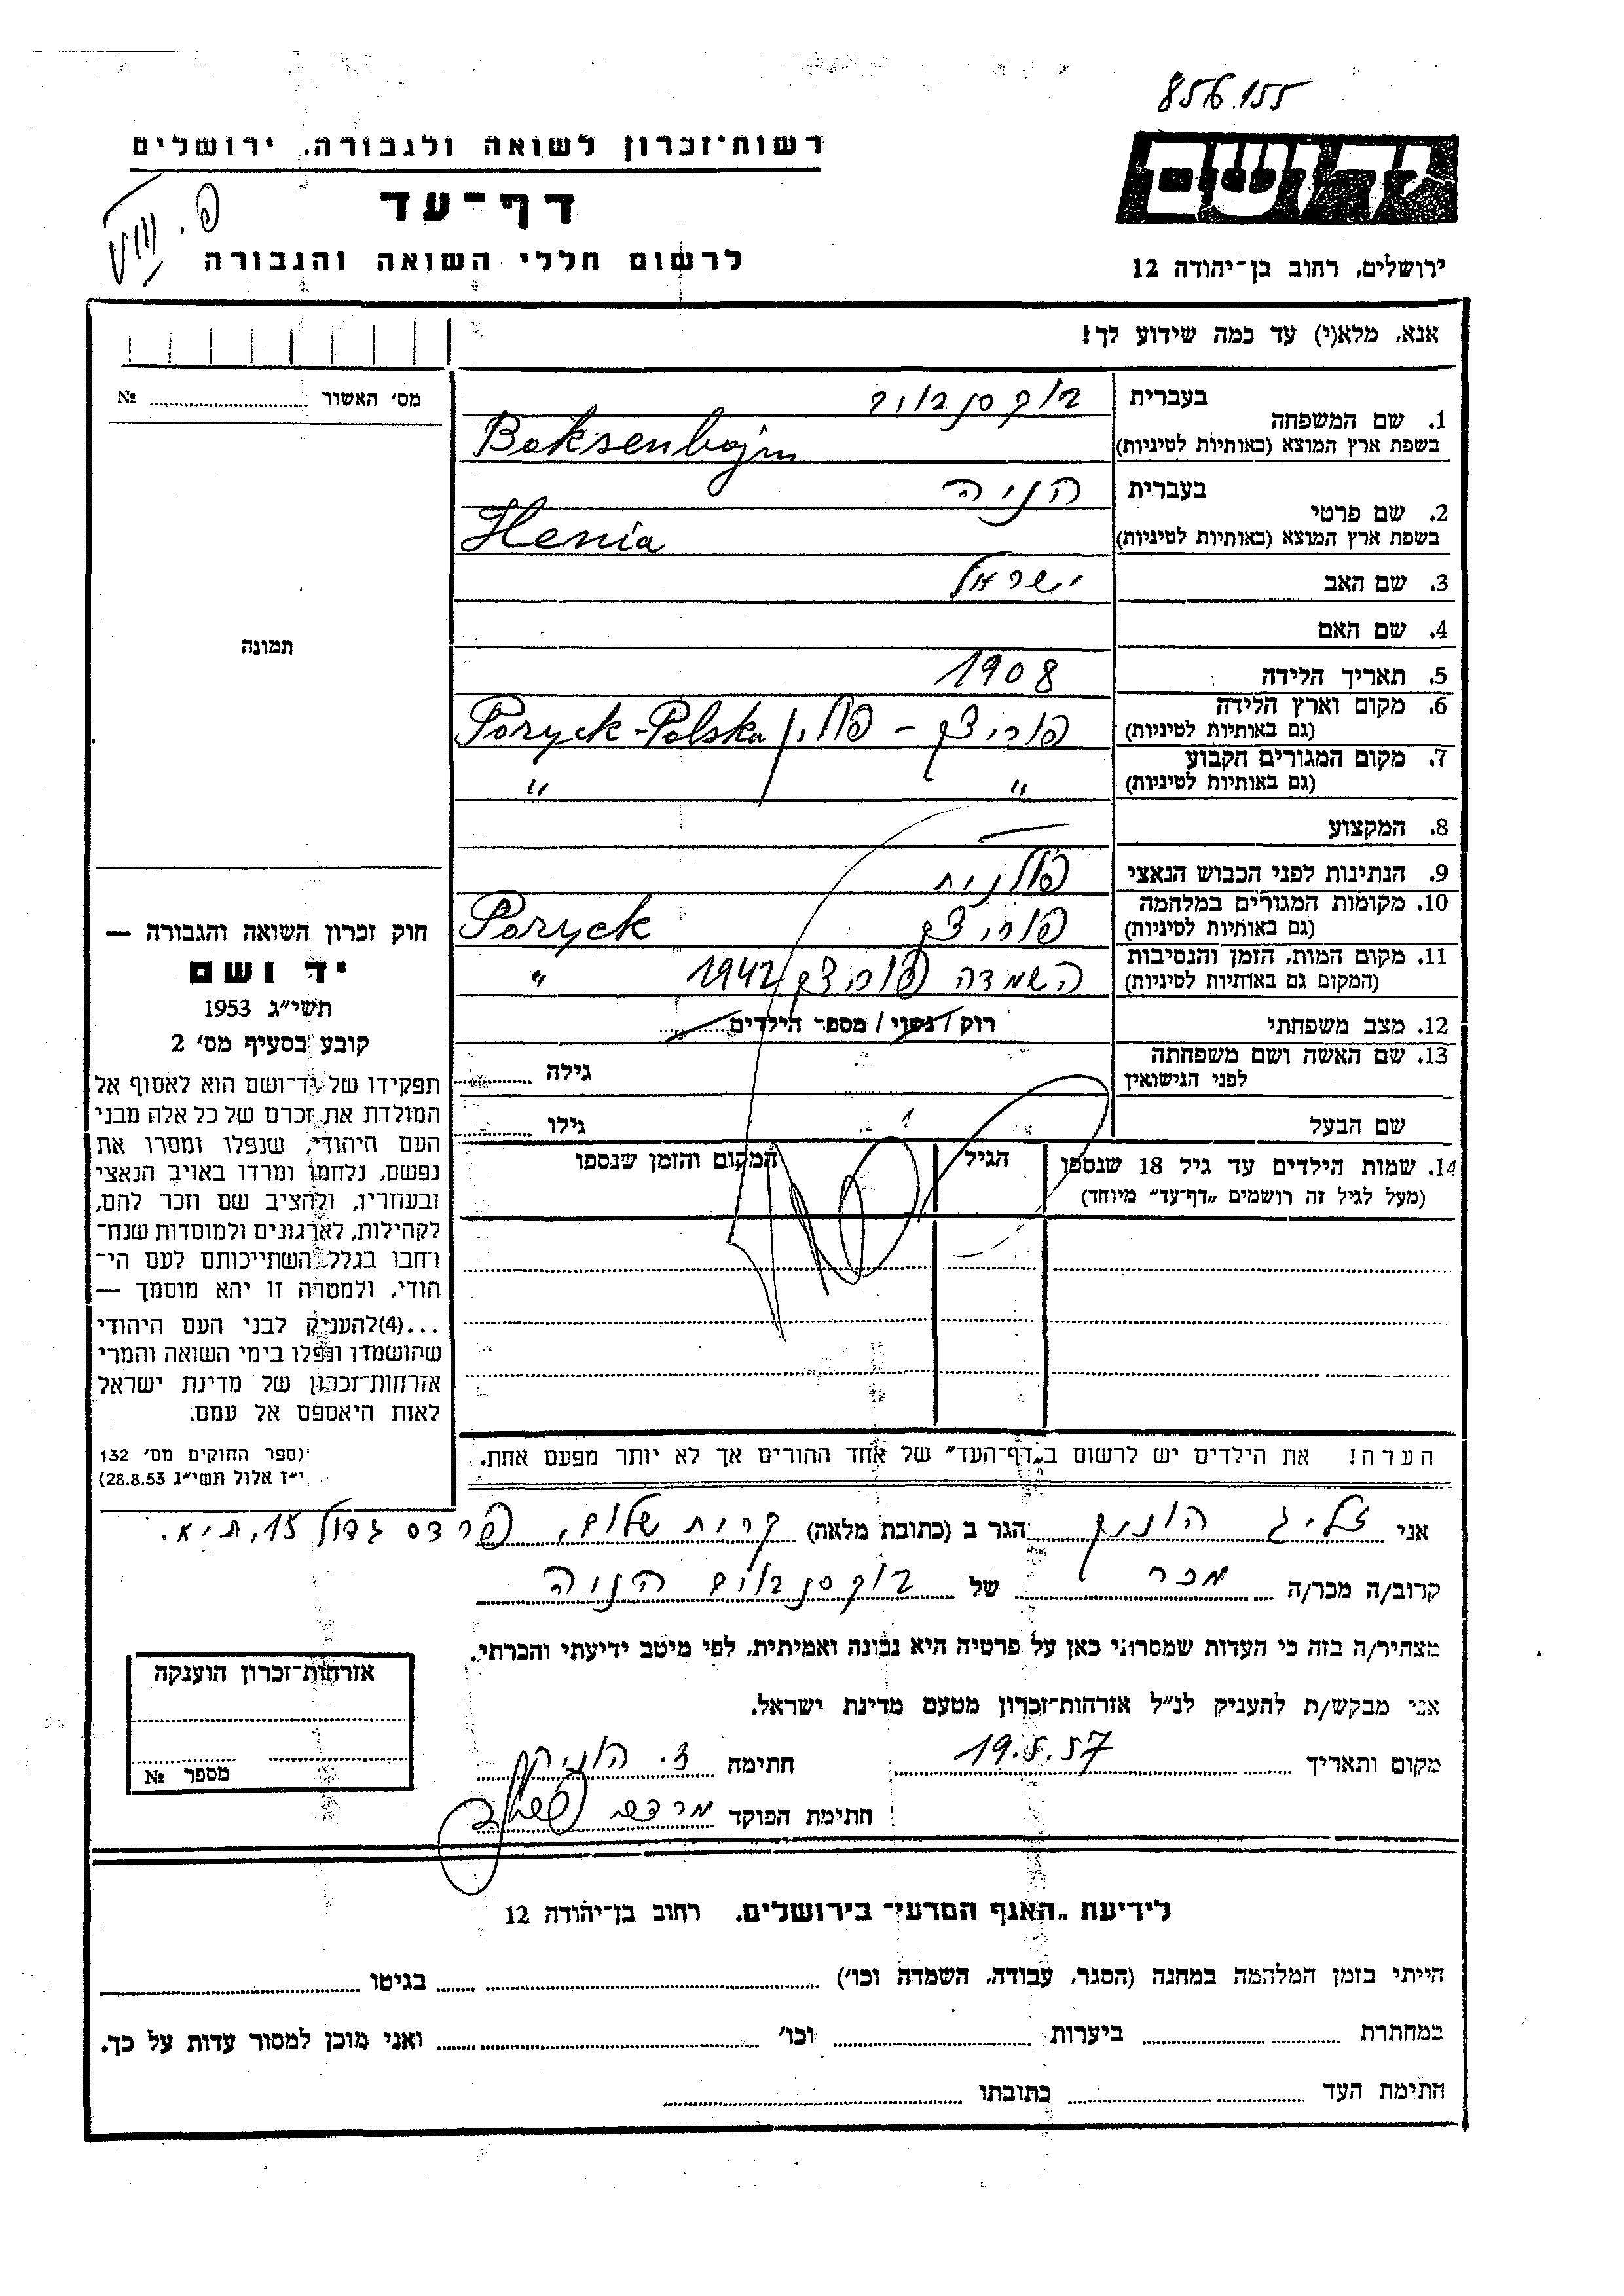 856.155
רשות־זכרון לשואה ולגבורה, ירושלים
יד ושם
דף־עד
פ. VIII
לרשום חללי השואה והגבורה
ירושלים, רחוב בן־יהודה 12
אנא, מלא(י) עד כמה שידוע לך!
מס' האשור № 
בעברית בוקסנבוים
1. שם המשפחה
בשפת ארץ המוצא (באותיות לטיניות) Boksenbojm
בעברית הניה
2. שם פרטי
בשפת ארץ המוצא (באותיות לטיניות) Henia
3. שם האב ישראל
4. שם האם
5. תאריך הלידה 1908
6. מקום וארץ הלידה
(גם באותיות לטיניות) פוריצק – פולין Poryck-Polska
7. מקום המגורים הקבוע
(גם באותיות לטיניות) " "
8. המקצוע —
9. הנתינות לפני הכבוש הנאצי פולנית
10. מקומות המגורים במלחמה
(גם באותיות לטיניות) פוריצק Poryck
11. מקום המות, הזמן והנסיבות
(המקום גם באותיות לטיניות) השמדה פוריצק 1942 "
12. מצב משפחתי רוק / נשוי / מספר הילדים
13. שם האשה ושם משפחתה
לפני הנישואין גילה
שם הבעל גילו
14. שמות הילדים עד גיל 18 שנספו הגיל המקום והזמן שנספו
(מעל לגיל זה רושמים „דף־עד" מיוחד)
הערה! את הילדים יש לרשום ב„דף־העד" של אחד ההורים אך לא יותר מפעם אחת.
תמונה
חוק זכרון השואה והגבורה —
יד ושם
תשי"ג 1953
קובע בסעיף מס' 2
תפקידו של יד־ושם הוא לאסוף אל
המולדת את זכרם של כל אלה מבני
העם היהודי, שנפלו ומסרו את
נפשם, נלחמו ומרדו באויב הנאצי
ובעוזריו, ולהציב שם וזכר להם,
לקהילות, לארגונים ולמוסדות שנח־
רחבו בגלל השתייכותם לעם הי־
הודי, ולמטרה זו יהא מוסמך —
...(4)להעניק לבני העם היהודי
שהושמדו ונפלו בימי השואה והמרי
אזרחות־זכרון של מדינת ישראל
לאות היאספם אל עמם.
(ספר החוקים מס' 132
י"ז אלול תשי"ג 28.8.53)
אני זליג הוניק הגר ב (כתובת מלאה) קרית שלום, פרדס גדול 15, ת"א.
קרוב/ה מכר/ה מכר של בוקסנבוים הניה
מצהיר/ה בזה כי העדות שמסרתי כאן על פרטיה היא נכונה ואמיתית, לפי מיטב ידיעתי והכרתי.
אני מבקש/ת להעניק לנ"ל אזרחות־זכרון מטעם מדינת ישראל.
מקום ותאריך 19.5.57 חתימה ז. הוניק
חתימת הפוקד מרדכי
אזרחות־זכרון הוענקה
מספר №
לידיעת „האגף המדעי" בירושלים, רחוב בן־יהודה 12
הייתי בזמן המלחמה במחנה (הסגר, עבודה, השמדה וכו') בגיטו
במחתרת ביערות וכו' ואני מוכן למסור עדות על כך.
חתימת העד כתובתו